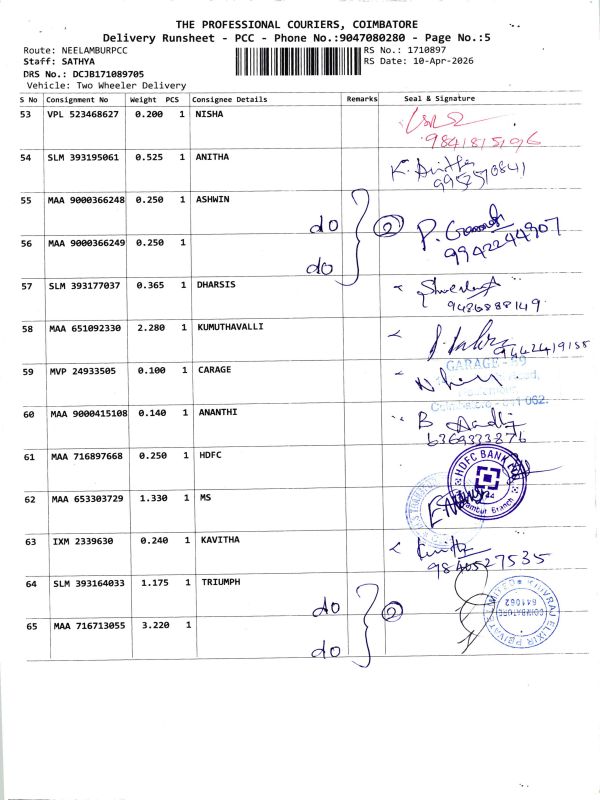 THE PROFESSIONAL COURIERS, COIMBATORE
Delivery Runsheet - PCC - Phone No.:9047080280 - Page No.:5
Route: NEELAMBURPCC RS No.: 1710897
Staff: SATHYA RS Date: 10-Apr-2026
DRS No.: DCJB171089705
Vehicle: Two Wheeler Delivery
S No Consignment No Weight PCS Consignee Details Remarks Seal & Signature
53 VPL 523468627 0.200 1 NISHA
9841815196
54 SLM 393195061 0.525 1 ANITHA K. Anitha
9952510841
55 MAA 9000366248 0.250 1 ASHWIN
do 2
9942244907
56 MAA 9000366249 0.250 1
do
57 SLM 393177037 0.365 1 DHARSIS
9486888149
58 MAA 651092330 2.280 1 KUMUTHAVALLI
9442419155
59 MVP 24933505 0.100 1 CARAGE
GARAGE - 59
Coimbatore - 641 062.
60 MAA 9000415108 0.140 1 ANANTHI B
6369333876
61 MAA 716897668 0.250 1 HDFC
HDFC BANK
62 MAA 653303729 1.330 1 MS
63 IXM 2339630 0.240 1 KAVITHA
9840527535
64 SLM 393164033 1.175 1 TRIUMPH
do 2
COIMBATORE
641062
65 MAA 716713055 3.220 1
do